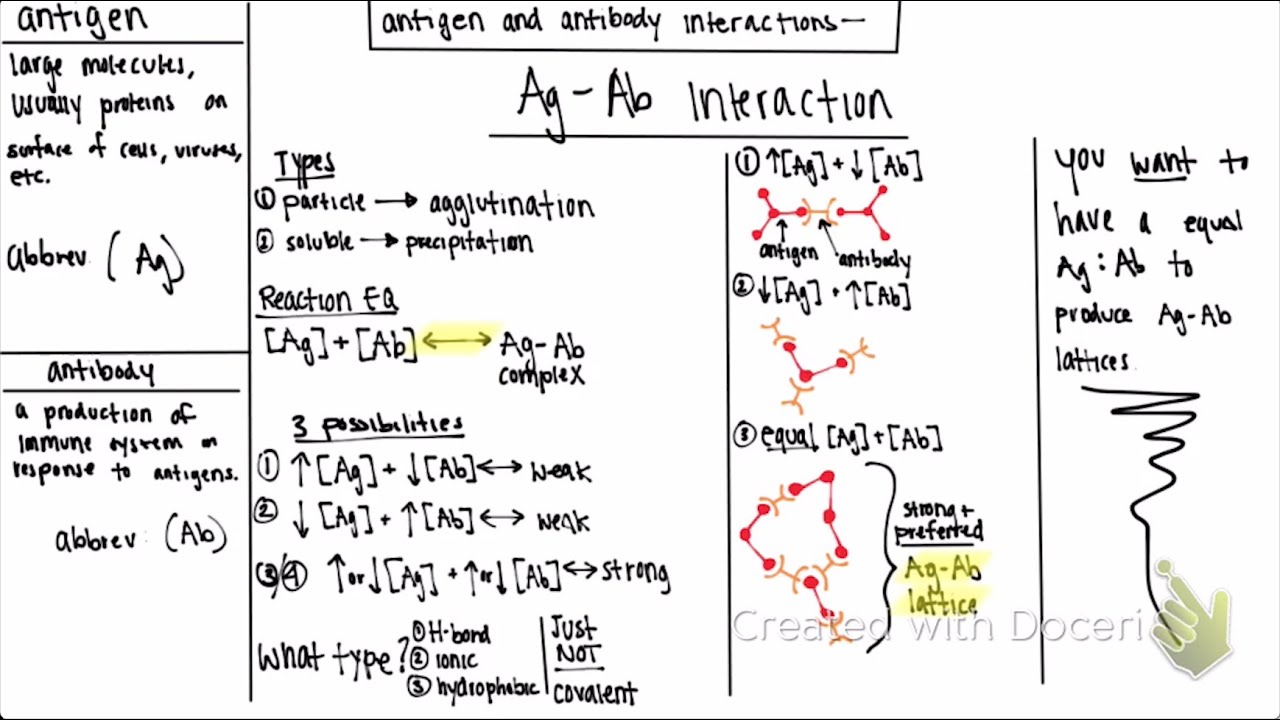 antigen
large molecules,
usually proteins on
surface of cells, viruses,
etc.
abbrev (Ag)
antibody
a production of
immune system in
response to antigens.
abbrev: (Ab)
antigen and antibody interactions—
Ag-Ab Interaction
Types
① particle → agglutination
② soluble → precipitation
Reaction EQ
[Ag] + [Ab] ↔ Ag-Ab
complex
3 possibilities
① ↑[Ag] + ↓[Ab] ↔ weak
② ↓[Ag] + ↑[Ab] ↔ weak
③/④ ↑or↓[Ag] + ↑or↓[Ab] ↔ strong
What type?
① H-bond
② ionic
③ hydrophobic
Just
NOT
covalent
① ↑[Ag] + ↓[Ab]
antigen antibody
② ↓[Ag] + ↑[Ab]
③ equal [Ag] + [Ab]
strong +
preferred
Ag-Ab
lattice
you want to
have a equal
Ag:Ab to
produce Ag-Ab
lattices.
Created with Doceri